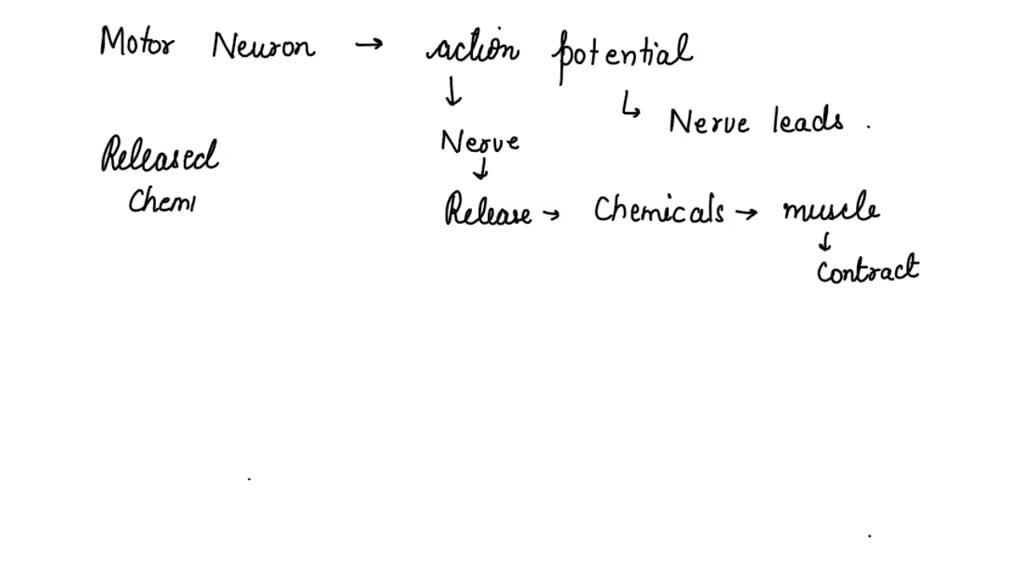 Motor Neuron → action potential
↓ ↳ Nerve leads .
Nerve
Released ↓
Chemi Release → Chemicals → muscle
↓
Contract